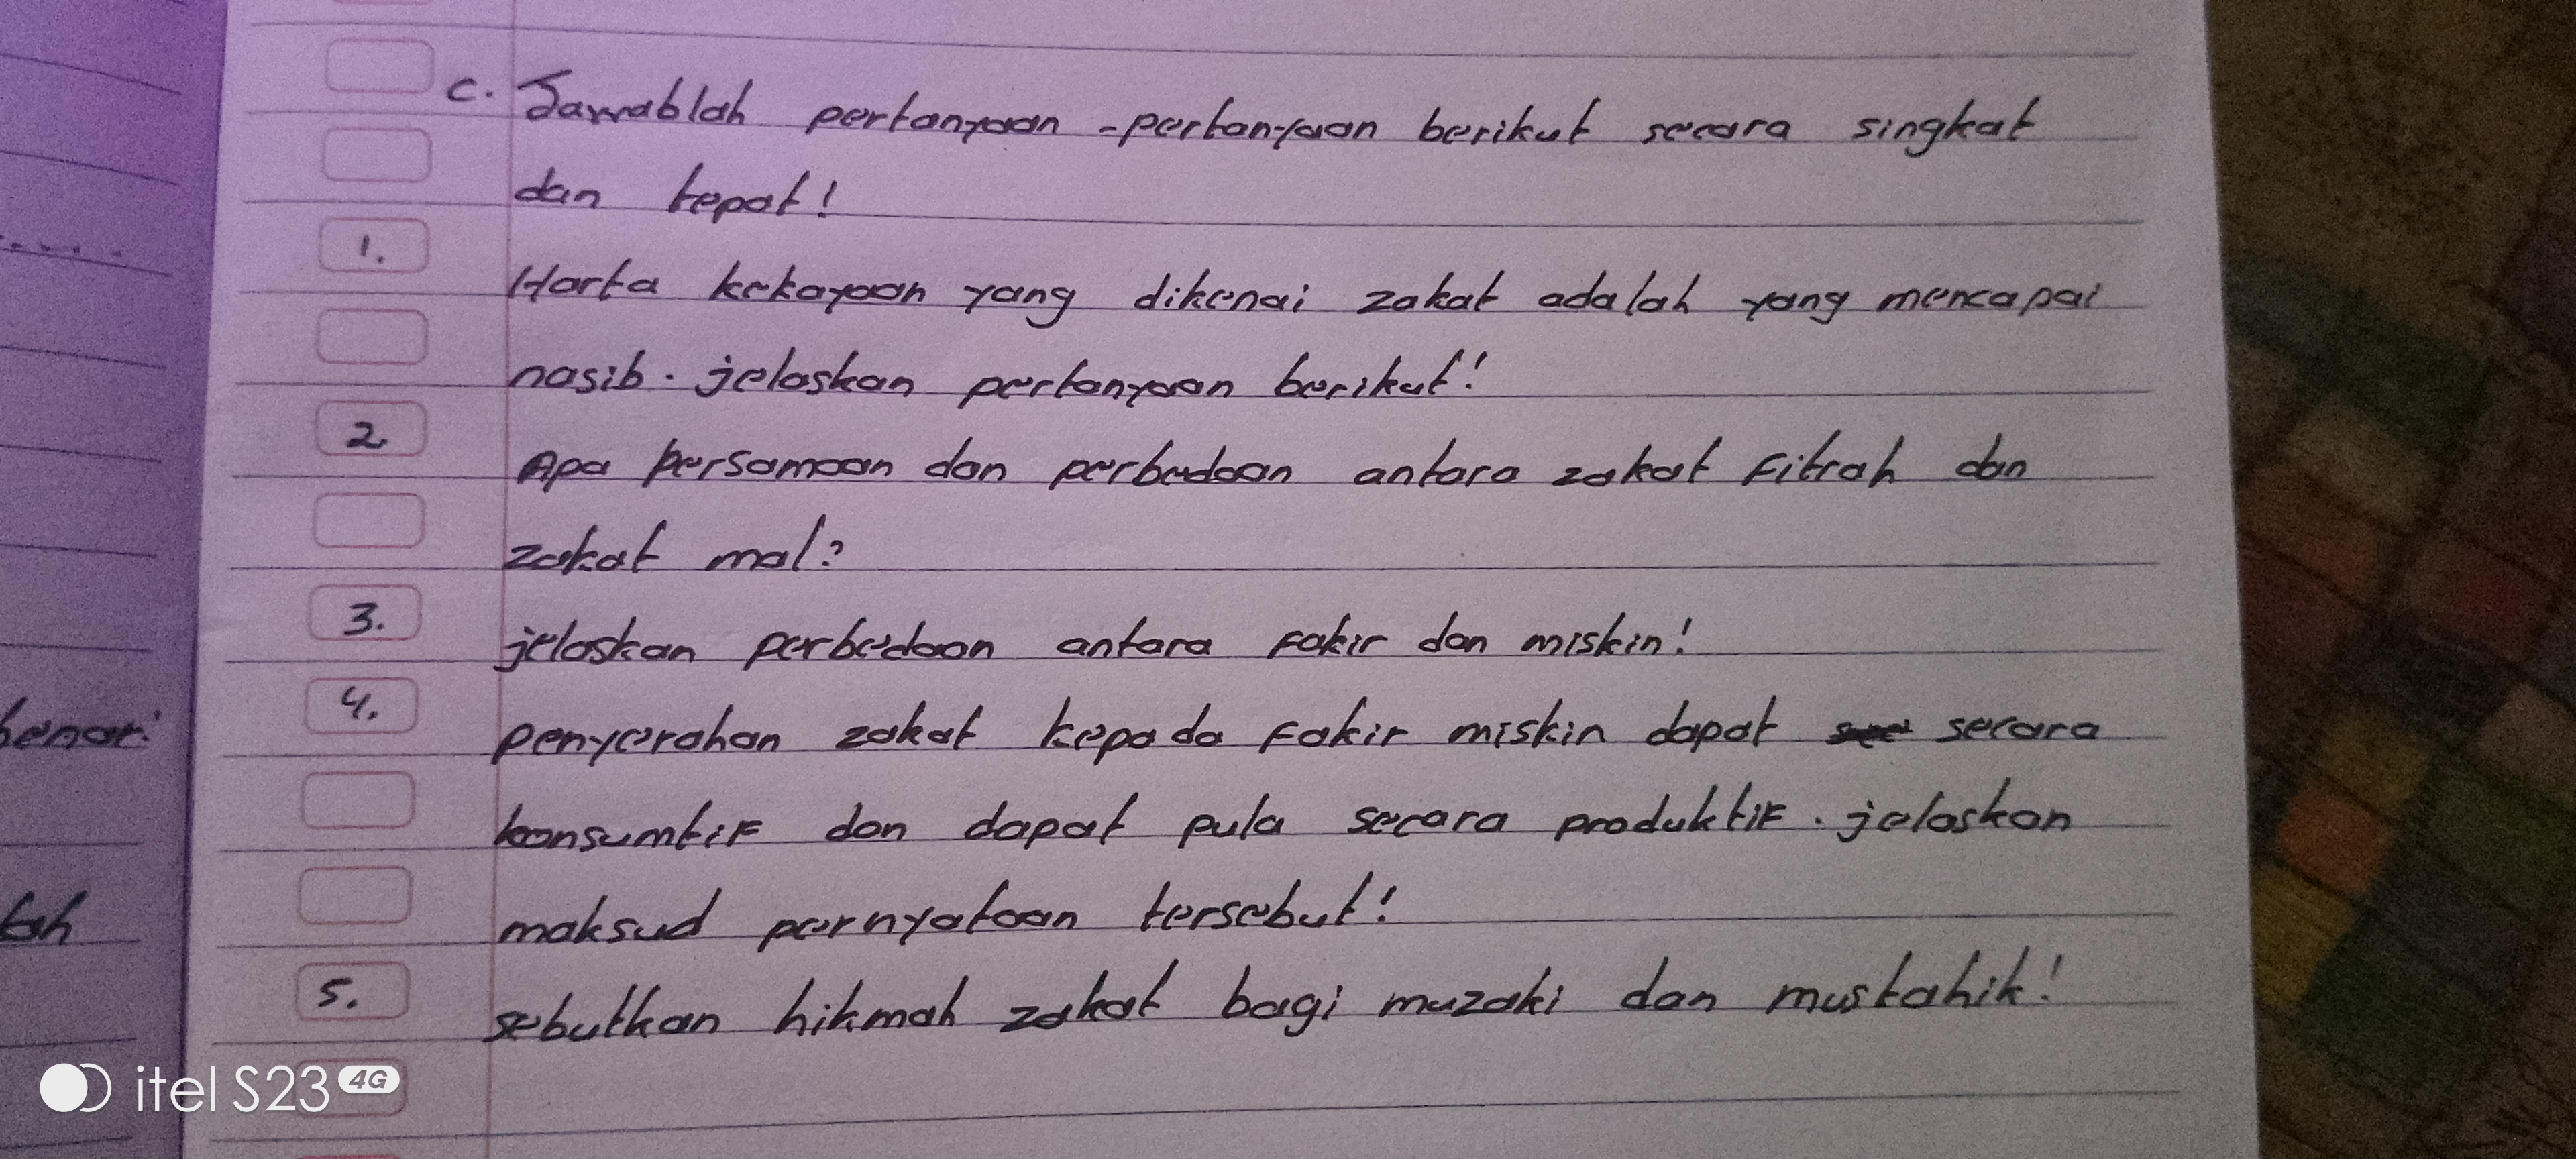 C. Jawablah pertanyaan-pertanyaan berikut secara singkat
dan tepat!
1. Harta kekayaan yang dikenai zakat adalah yang mencapai
nasib. jelaskan pertanyaan berikut!
2. Apa persamaan dan perbedaan antara zakat Fitrah dan
zakat mal?
3. jelaskan perbedaan antara Fakir dan miskin!
4. penyerahan zakat kepada Fakir miskin dapat secara
konsumtif dan dapat pula secara produktif. jelaskan
maksud pernyataan tersebut!
5. sebutkan hikmah zakat bagi muzaki dan mustahik!
benar!
lah
itel S23 4G